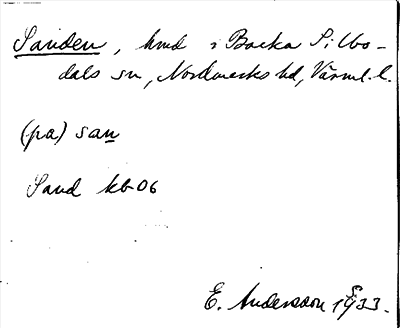 Sanden, hmd i Backa Silbo-
dals sn, Nordmarks hd, Värml. l.
(pa) san
Sand kb 06
E. Andersson 1933.